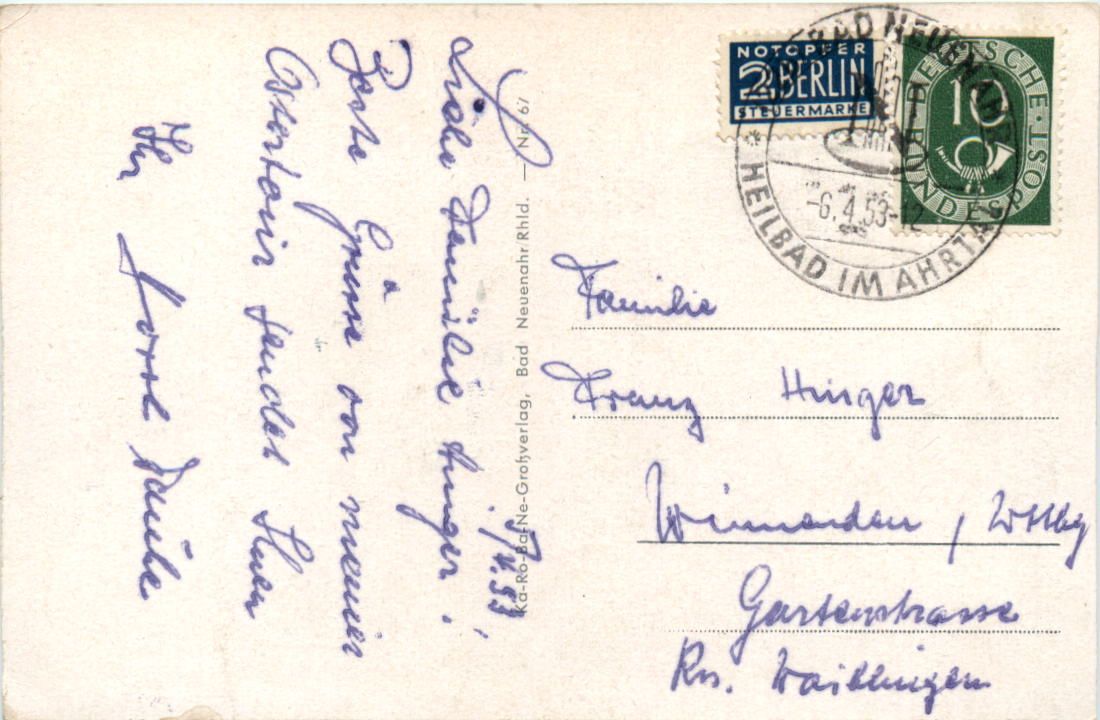 Liebe Familie Hinger!
Beste Grüsse von meiner
sendet Ihnen
Ihr
Ka-Ro-Ba-Ne-Großverlag, Bad Neuenahr/Rhld. — Nr. 67
NOTOPFER
2 BERLIN
STEUERMARKE
DEUTSCHE BUNDESPOST
10
BAD NEUENAHR
-6.4.53-12
HEILBAD IM AHRTAL
Familie
Franz Hinger
Winnenden, Wttbg
Gartenstrasse
Krs. Waiblingen